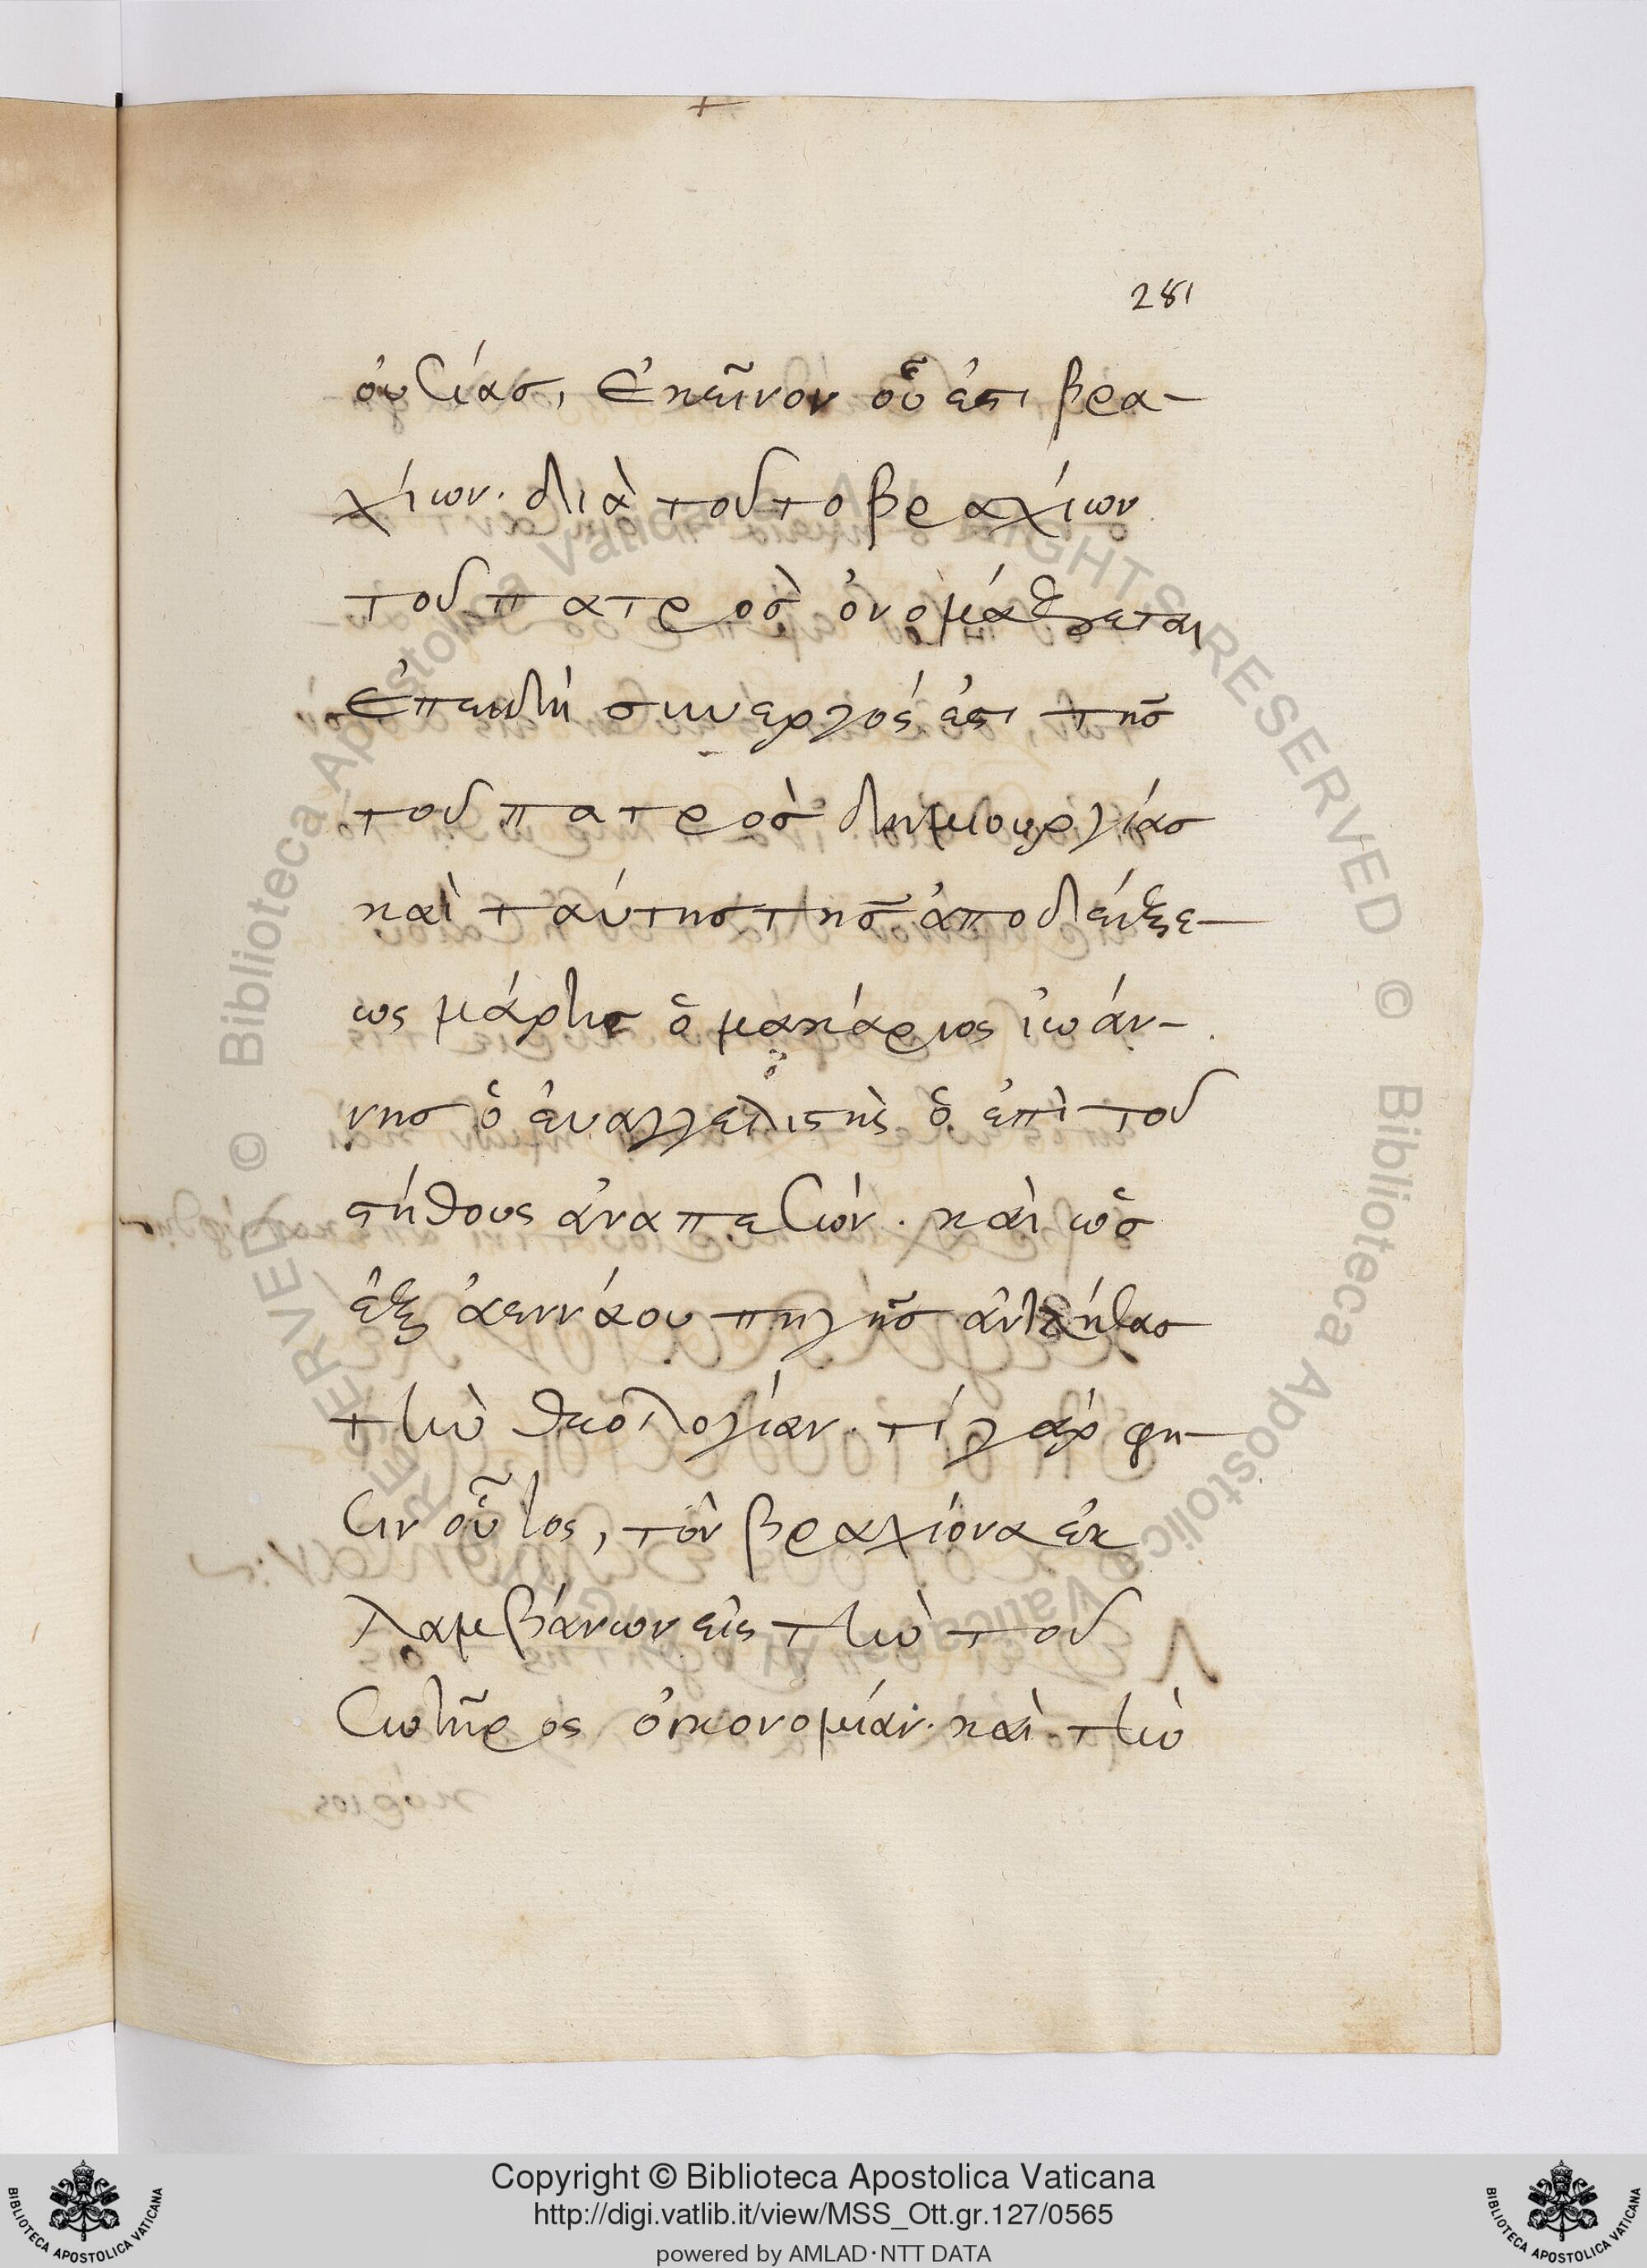 281
οὐσίας, ἐκεῖνον οὗ ἐστι βρα-
χίων. διὰ τοῦτο βραχίων
τοῦ πατρὸς ὀνομάζεται
ἐπειδὴ συνεργός ἐστι τῆς
τοῦ πατρὸς δημιουργίας
καὶ ταύτης τῆς ἀποδείξε-
ως μάρτυς ὁ μακάριος ἰωάν-
νης ὁ ἐυαγγελιστὴς ὁ ἐπὶ τοῦ
στήθους ἀναπεσών. καὶ ὡς
ἐξ ἀεννάου πηγῆς ἀντλήσας
τὴν θεολογίαν. τί γάρ φη-
σιν οὗτος, τὸν βραχίονα ἐκ
λαμβάνων εἰς τὴν τοῦ
σωτῆρος οἰκονομίαν. καὶ τὴν
Copyright © Biblioteca Apostolica Vaticana
http://digi.vatlib.it/view/MSS_Ott.gr.127/0565
powered by AMLAD·NTT DATA
BIBLIOTECA APOSTOLICA VATICANA
BIBLIOTECA APOSTOLICA VATICANA